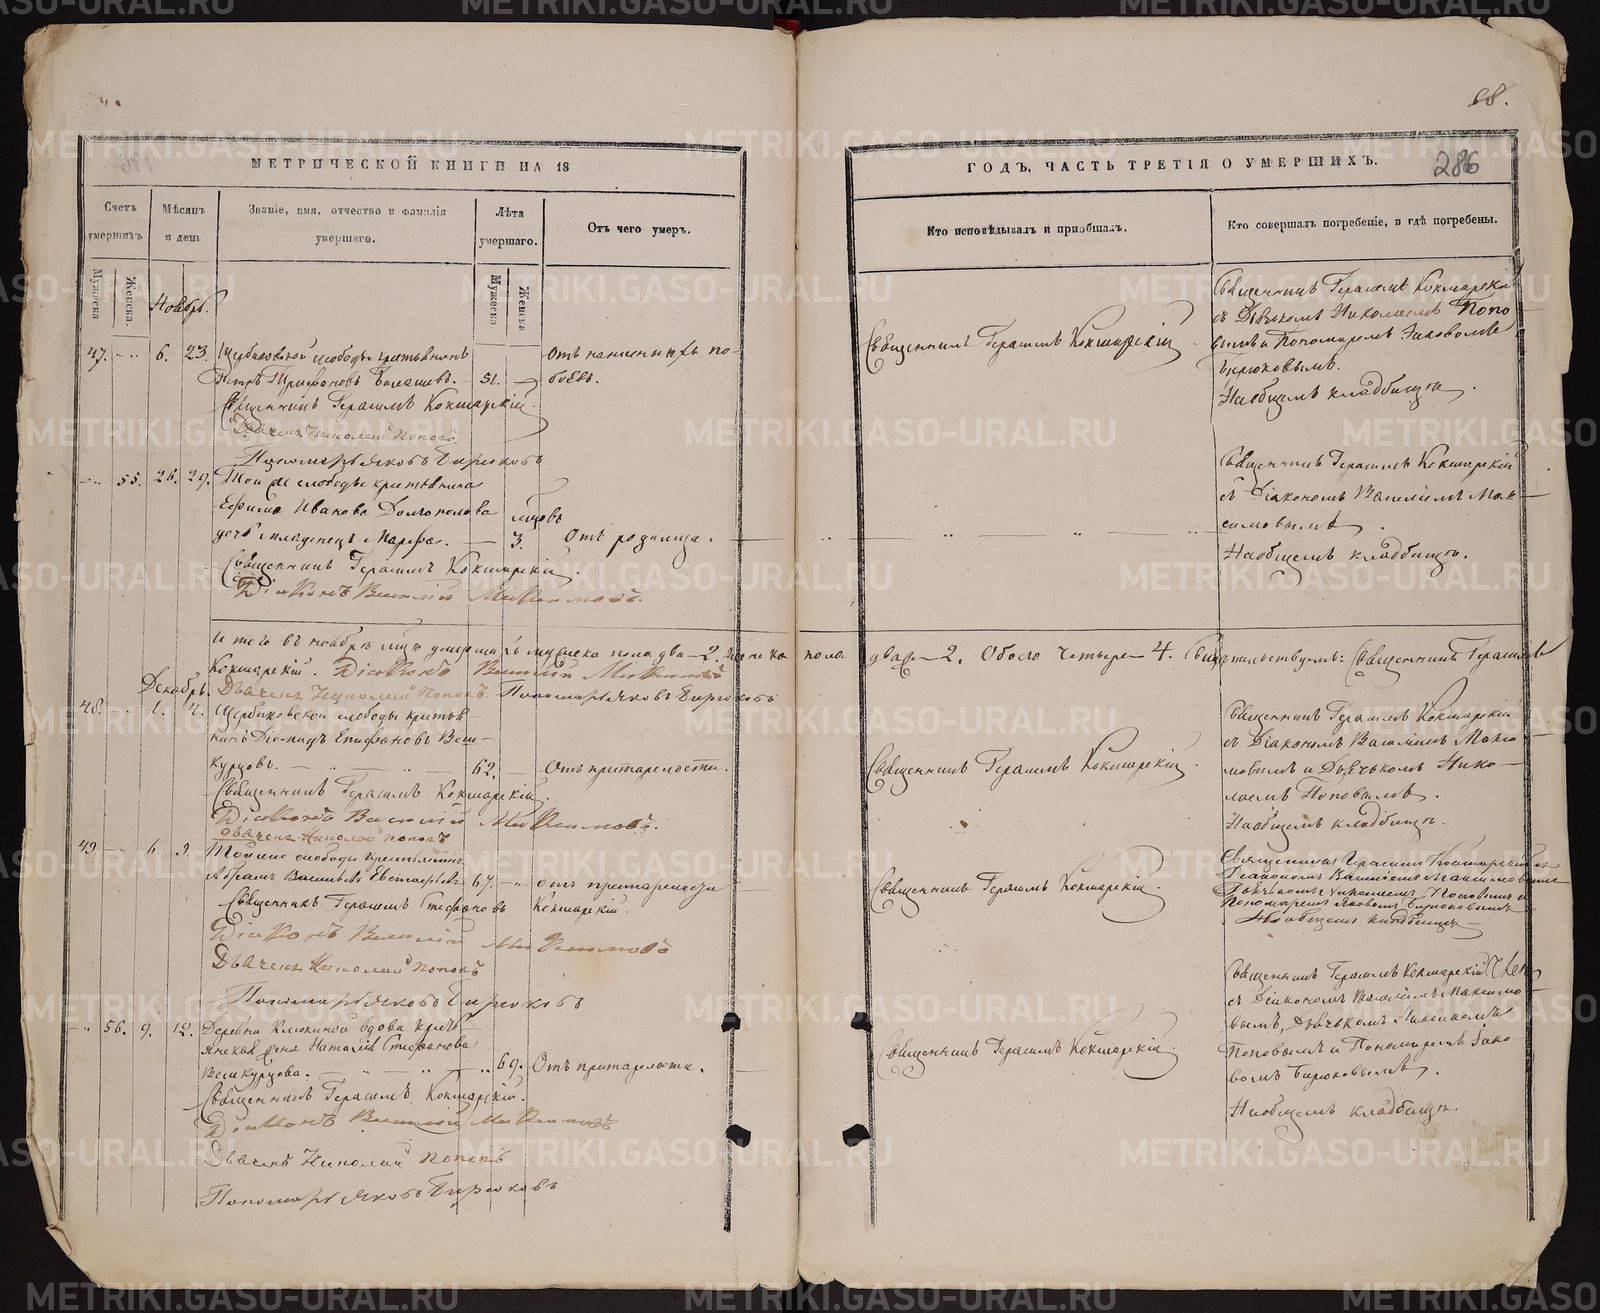 68.
МЕТРИЧЕСКОЙ КНИГИ НА 18
Счетъ умершихъ
Мѣсяцъ и день
Званіе, имя, отчество и фамилія умершаго.
Лѣта умершаго.
Отъ чего умеръ.
Мужеска
Женска.
Мужеска
Женска
Ноябрь.
47. 6. 23. Щербаковской слободы крестьянинъ Отъ нанесенныхъ по-
Петръ Трифоновъ Балашевъ. 51. боевъ.
Священникъ Герасимъ Кокшарскій.
Дьячекъ Николай Поповъ
Пономарь Яковъ Бирюковъ
55. 26. 29. Той же слободы крестьянина
Ефима Иванова Долгополова мѣсяцовъ
дочь младенецъ Марѳа. 3. Отъ родимца.
Священникъ Герасимъ Кокшарскій.
Діаконъ Василій Максимовъ.
Итого въ ноябрѣ м-цѣ умершихъ мужеска пола два 2. женска
Кокшарскій. Діаконъ Василій Максимовъ
Дьячекъ Николай Поповъ. Пономарь Яковъ Бирюковъ
Декабрь.
48. 1. 4. Щербаковской слободы крестья-
нинъ Діомидъ Епифановъ Вен-
курцовъ. 62. Отъ престарелости.
Священникъ Герасимъ Кокшарскій.
Діаконъ Василій Максимовъ.
Дьячекъ Николай Поповъ
49. 6. 9. Той же слободы крестьянинъ
Абрамъ Васильевъ 67. отъ престарелости
Священникъ Герасимъ Стефановъ Кокшарскій.
Діаконъ Василій Максимовъ
Дьячекъ Николай Поповъ
Пономарь Яковъ Бирюковъ
56. 9. 12. Деревни Клюкиной вдова кресть-
янская жена Наталія Стефанова
Венкурцова. 69. Отъ престарелости.
Священникъ Герасимъ Кокшарскій.
Діаконъ Василій Максимовъ
Дьячекъ Николай Поповъ
Пономарь Яковъ Бирюковъ
ГОДЪ, ЧАСТЬ ТРЕТІЯ О УМЕРШИХЪ.
286
Кто исповѣдывалъ и пріобщалъ.
Кто совершалъ погребеніе, и гдѣ погребены.
Священникъ Герасимъ Кокшарскій
Священникъ Герасимъ Кокшарскій
съ Дьячькомъ Николаемъ Попо-
вымъ и Пономаремъ Яковомъ
Бирюковымъ.
На общемъ кладбищѣ.
Священникъ Герасимъ Кокшарскій
съ Діакономъ Василіемъ Мак-
симовымъ.
На общемъ кладбищѣ.
пола двѣ 2. Обоего четыре 4. Свидѣтельствуемъ: Священникъ Герасимъ
Священникъ Герасимъ Кокшарскій.
Священникъ Герасимъ Кокшарскій
съ Діакономъ Василіемъ Макси-
мовымъ и Дьячькомъ Нико-
лаемъ Поповымъ.
На общемъ кладбищѣ.
Священникъ Герасимъ Кокшарскій.
Священникъ Герасимъ Кокшарскій съ
Діакономъ Василіемъ Максимовымъ
Дьячькомъ Николаемъ Поповымъ и
Пономаремъ Яковомъ Бирюковымъ
На общемъ кладбищѣ
Священникъ Герасимъ Кокшарскій.
Священникъ Герасимъ Кокшарскій
съ Діакономъ Василіемъ Максимо-
вымъ, Дьячькомъ Николаемъ
Поповымъ и Пономаремъ Яко-
вомъ Бирюковымъ.
На общемъ кладбищѣ.
METRIKI.GASO-URAL.RU